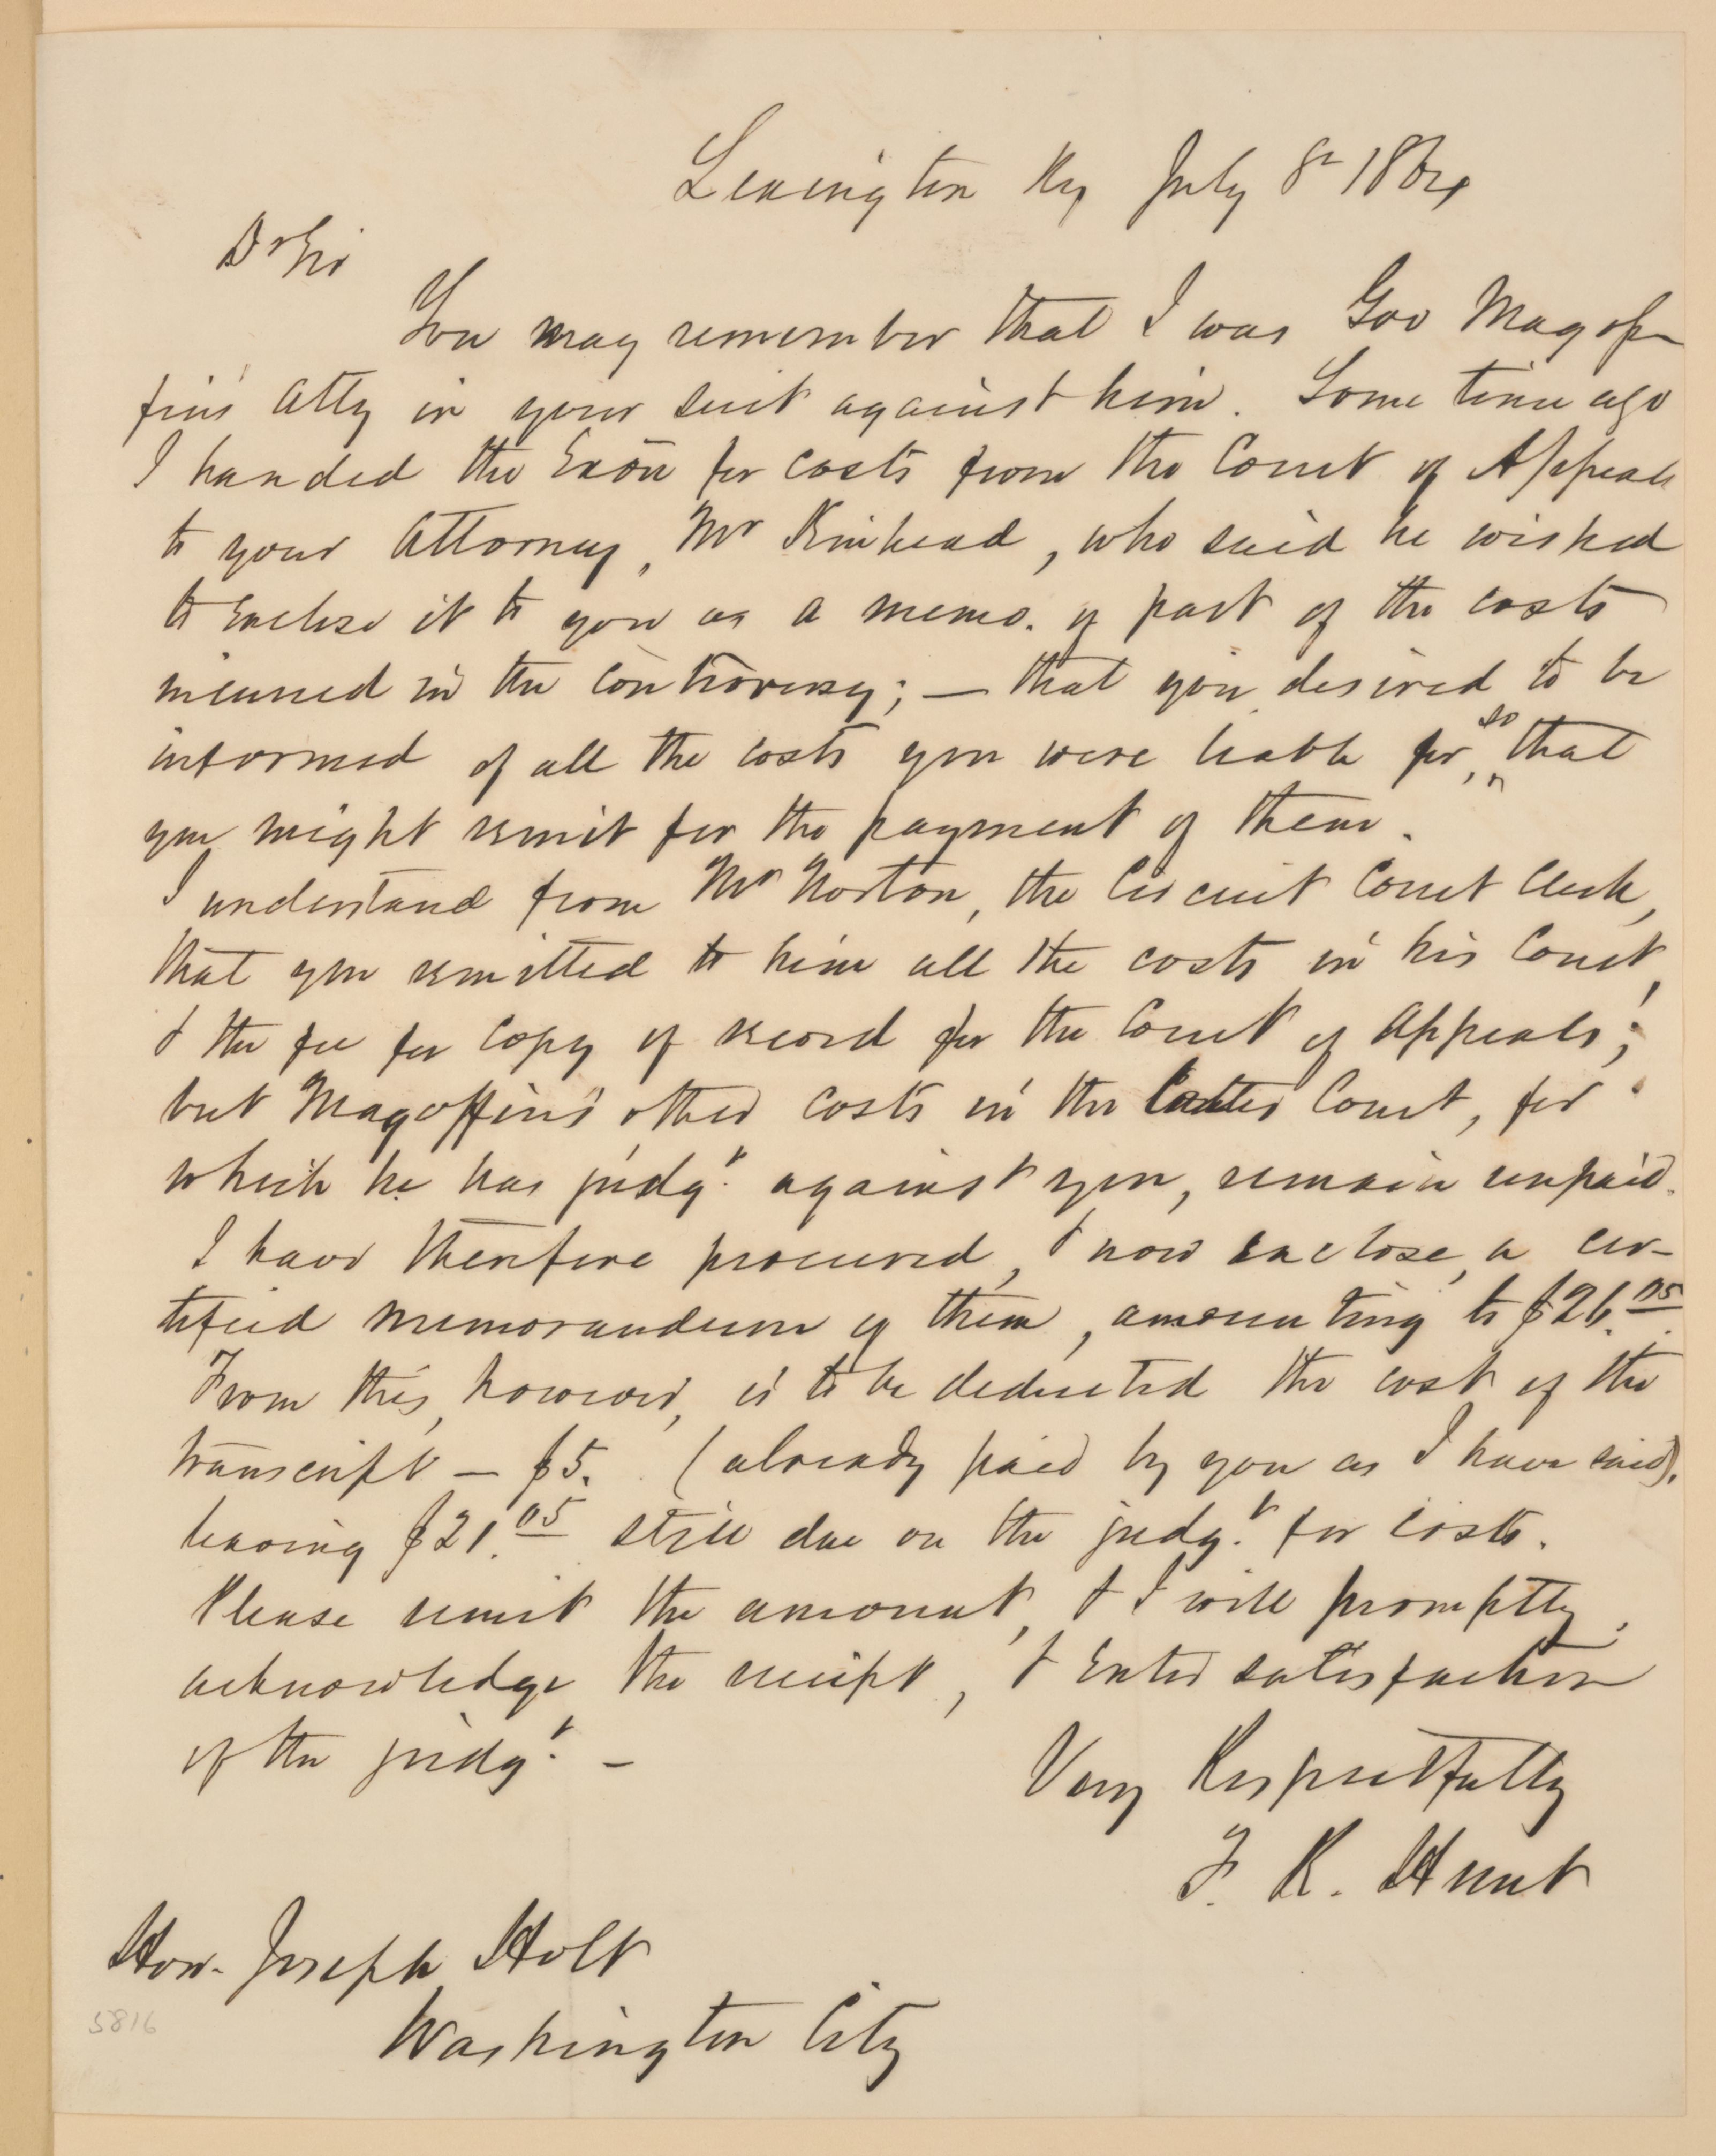 Lexington Ky July 8th 1864
Dr Sir
You may remember that I was Gov Magof-
fin's Atty in your suit against him. Some time ago
I handed the Exōn for costs from the Court of Appeals
to your Attorney, Mr Kinkead, who said he wished
to Enclose it to you as a memo. of part of the costs
incurred in the controversy; — that you desired to be
informed of all the costs you were liable for, so that
you might remit for the payment of them.
I understand from Mr Norton, the Circuit Court Clerk,
that you remitted to him all the costs in his Court,
& the fee for Copy of record for the Court of Appeals;
but Magoffin's other costs in the Court, for
which he has judgt. against you, remain unpaid.
I have therefore procured, & now enclose, a cer-
tified memorandum of them, amounting to $26.05
From this, however, is to be deducted the cost of the
transcript — $5. (already paid by you as I have said),
leaving $21.05 still due on the judgt. for costs.
Please remit the amount, & I will promptly
acknowledge the receipt, & Enter satisfaction
of the judgt. —
Very Respectfully
F. K. Hunt
Hon. Joseph Holt
Washington City
5816